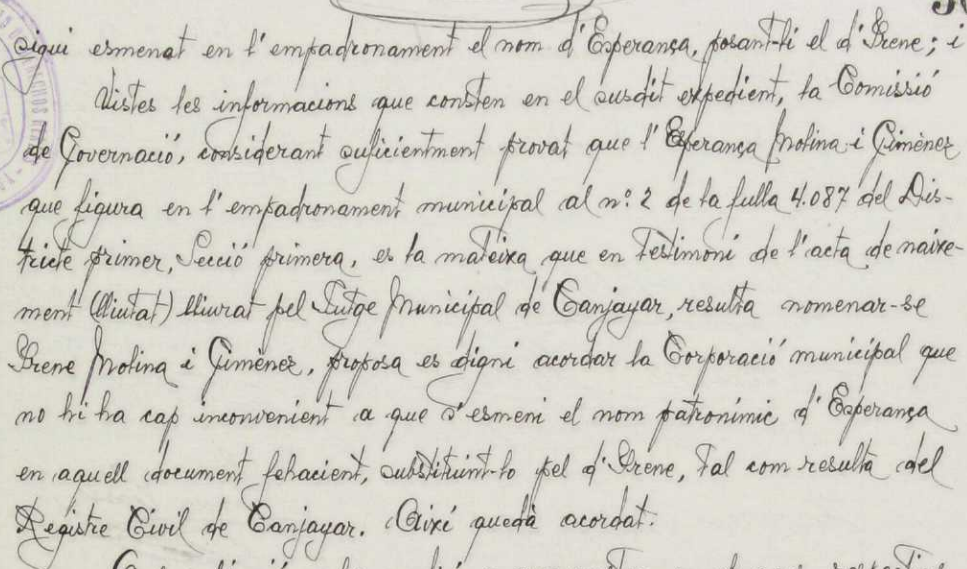 sigui esmenat en l'empadronament el nom d'Esperança, posant-li el d'Irene; i
Vistes les informacions que consten en el susdit expedient, la Comissió
de Governació, considerant suficientment provat que l'Esperança Molina i Gimènez
que figura en l'empadronament municipal al nº. 2 de la fulla 4.087 del Dis-
tricte primer, Secció primera, es la mateixa que en testimoni de l'acta de naixe-
ment (lliutat) lliurat pel Jutge Municipal de Canjayar, resulta nomenar-se
Irene Molina i Gimènez, proposa es digni acordar la Corporació municipal que
no hi ha cap inconvenient a que s'esmeni el nom patronímic d'Esperança
en aquell document fehacient, substituint-lo pel d'Irene, tal com resulta del
Registre Civil de Canjayar. Així quedà acordat.